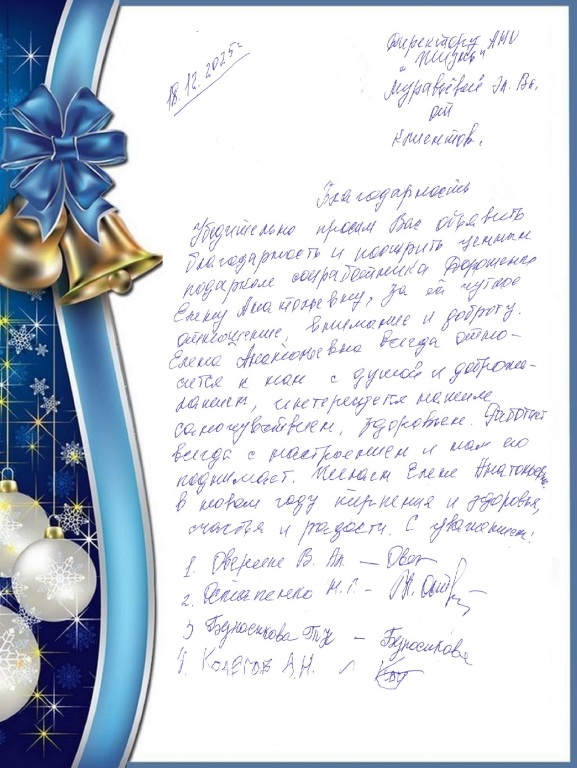 18.12.2025г
Директору АНО
"Жизнь"
Муравьёвой Гл. Вл.
от
клиентов.
Благодарность
Убедительно просим Вас объявить
благодарность и поощрить ценным
подарком соцработника Дорошенко
Елену Анатольевну, за её чуткое
отношение, внимание и доброту.
Елена Анатольевна всегда отно-
сится к нам с душой и доброже-
ланием, интересуется нашим
самочувствием, здоровьем. Работает
всегда с настроением и нам его
поднимает. Желаем Елене Анатольевне
в новом году терпения и здоровья,
счастья и радости. С уважением!
1. В. Ал. –
2. Остапенко Н.Г. –
3 Бедносикова –
4. А.Н.